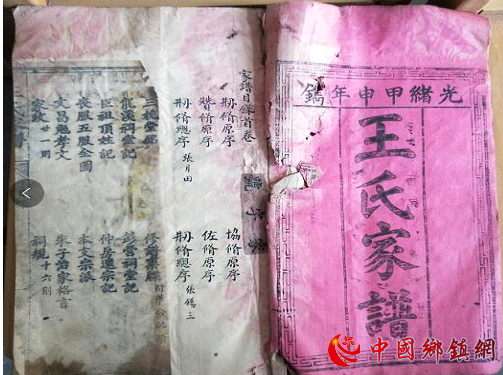 光緒甲申年鐫
王氏家譜
家譜目錄首卷
刱脩原序 協脩原序
賛脩原序 佐脩原序
刱脩總序 張月田 刱脩總序 張錫三
三槐堂銘
龍溪祠堂記 祠堂記
巨祖頂姓記 仲房遷宗記
喪服五服全圖 本文宗派
文昌魁孝文 朱子治家格言
家政廿一則 祠規十六則
中國鄉鎮網